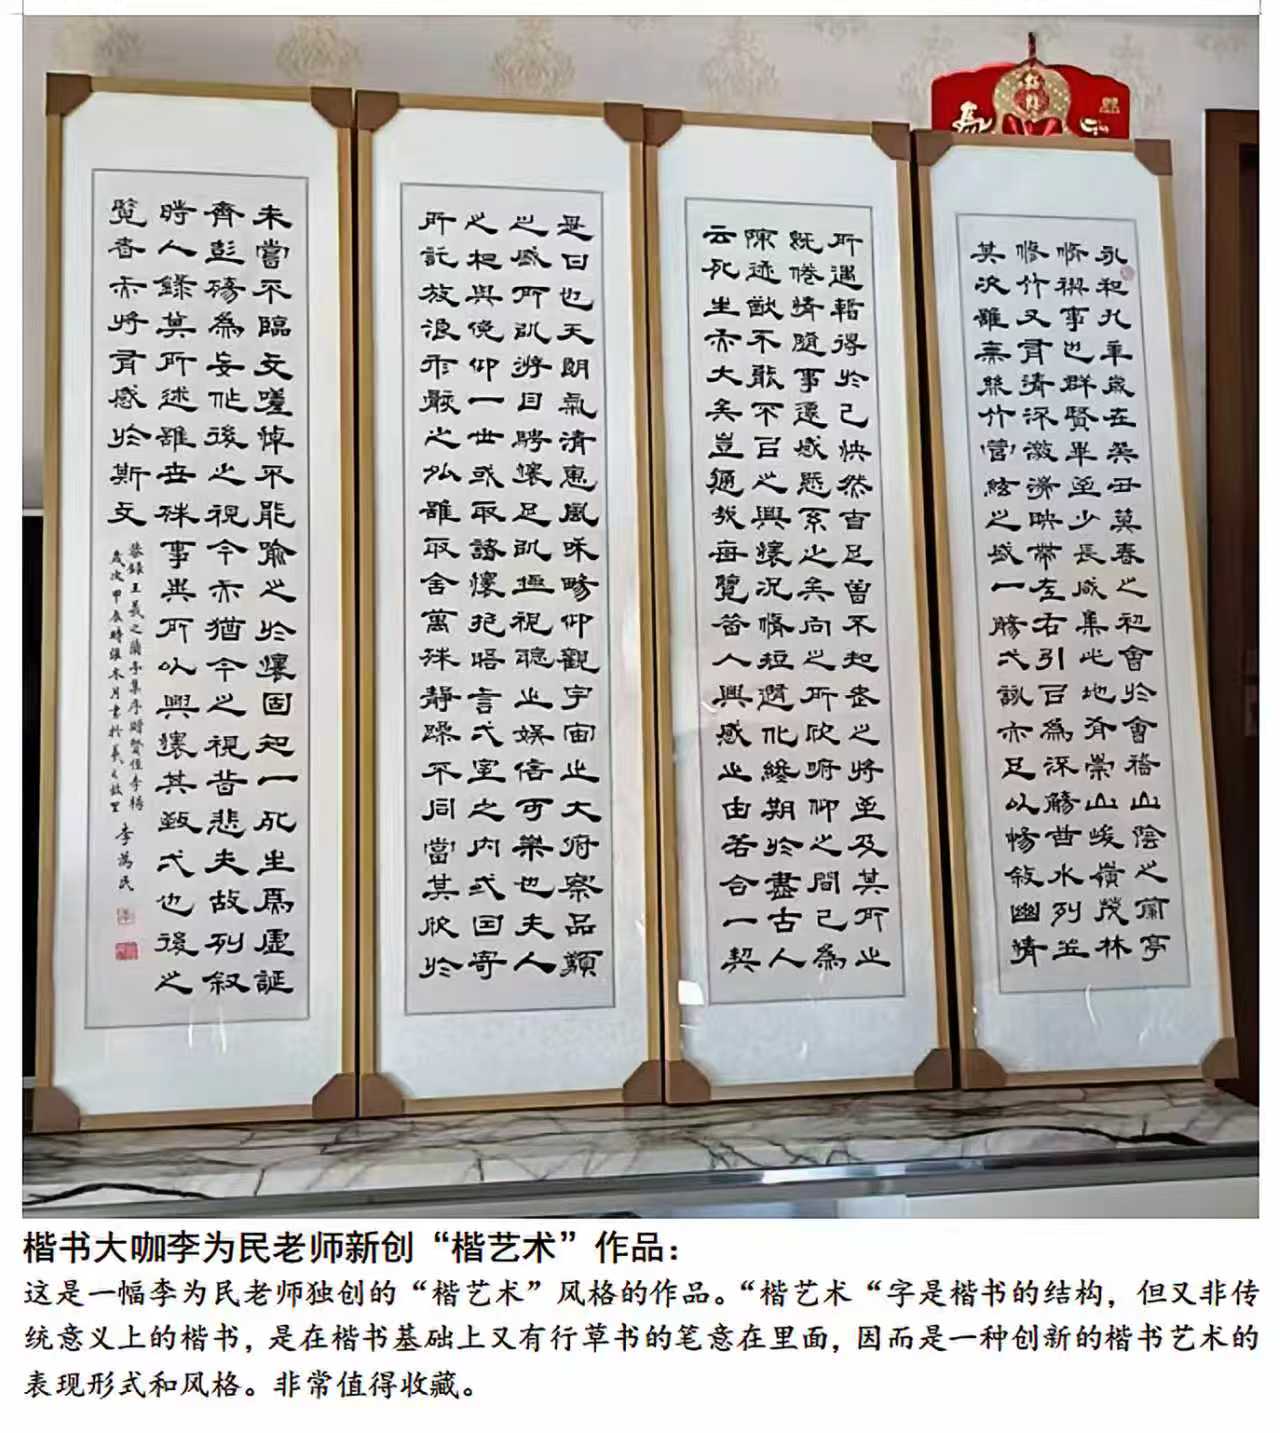 永和九年歲在癸丑莫春之初會於會稽山陰之蘭亭
脩禊事也群賢畢至少長咸集此地有崇山峻嶺茂林
脩竹又有清流激湍映帶左右引以為流觴曲水列坐
其次雖無絲竹管絃之盛一觴弌詠亦足以暢敘幽情
是日也天朗氣清惠風和暢仰觀宇宙之大俯察品類
之盛所以游目騁懷足以極視聽之娛信可樂也夫人
之相與俛仰一世或取諸懷抱晤言弌室之內或因寄
所託放浪形骸之外雖取舍萬殊靜躁不同當其欣於
所遇暫得於己怏然自足曾不知老之將至及其所之
既倦情隨事遷感慨系之矣向之所欣俯仰之間已為
陳迹猷不能不以之興懷況脩短隨化終期於盡古人
云死生亦大矣豈痛哉每覽昔人興感之由若合一契
未嘗不臨文嗟悼不能喻之於懷固知一死生為虛誕
齊彭殤為妄作後之視今亦猶今之視昔悲夫故列敘
時人錄其所述雖世殊事異所以興懷其致弌也後之
覽者亦將有感於斯文
恭錄王羲之蘭亭集序時
歲次甲辰時維冬月書於羲之故里 李為民
楷书大咖李为民老师新创“楷艺术”作品：
这是一幅李为民老师独创的“楷艺术”风格的作品。“楷艺术“字是楷书的结构，但又非传
统意义上的楷书，是在楷书基础上又有行草书的笔意在里面，因而是一种创新的楷书艺术的
表现形式和风格。非常值得收藏。